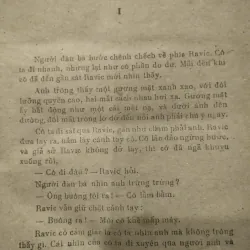 I
Người đàn bà bước chênh chếch về phía Ravic. Cô
ta đi nhanh, nhưng lại như có phần do dự. Mãi đến khi
cô đã đến gần sát Ravic mới nhìn thấy.
Anh trông thấy một gương mặt xanh xao, với đôi
lưỡng quyền cao, hai mắt cách nhau hơi xa. Gương mặt
đứng sững như một cái mặt nạ, và dưới ánh đèn
đường, đôi mắt trống đến độ làm anh phải chú ý ngay.
Cô ta đi sát qua Ravic, gần như chạm phải anh. Ravic
đưa tay ra, nắm lấy cánh tay cô. Cô ta lảo đảo, lúc ngừng
và giá sử Ravic không đỡ lấy, thì cô đã ngã xuống
đất.
— Cô đi đâu? — Ravic hỏi.
Người đàn bà nhìn anh trừng trừng?
— Ông buông tôi ra! — Cô lẩm bẩm.
Ravic vẫn giữ chặt cánh tay.
— Buông ra! — Môi cô khẽ mấp máy.
Ravic có cảm giác là cô ta nhìn anh mà không trông
thấy gì. Cái nhìn của cô ta đi xuyên qua người anh và